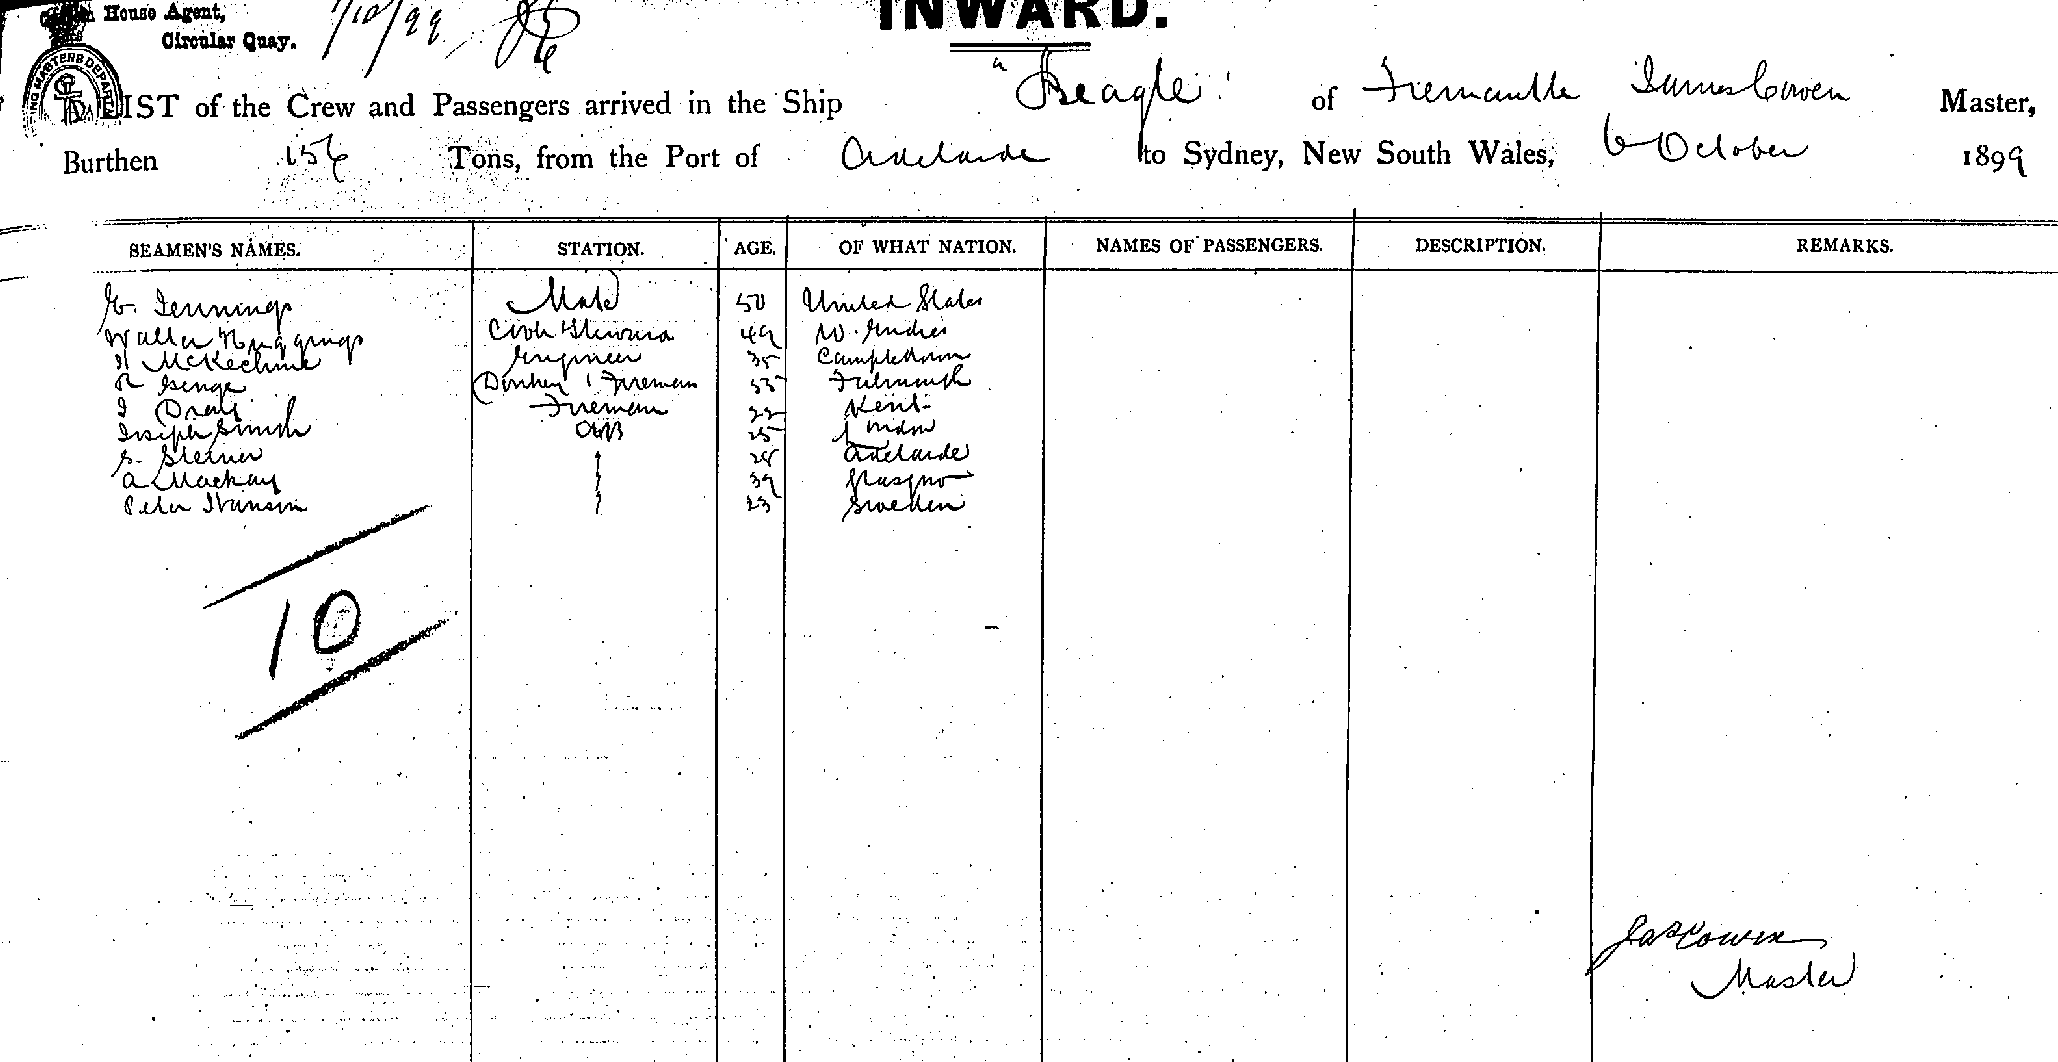 House Agent,
Circular Quay.
7/10/99
INWARD.
LIST of the Crew and Passengers arrived in the Ship "Beagle" of Fremantle James Cowen Master,
Burthen 156 Tons, from the Port of Adelaide to Sydney, New South Wales, 6 October 1899
SEAMEN'S NAMES. STATION. AGE. OF WHAT NATION. NAMES OF PASSENGERS. DESCRIPTION. REMARKS.
Jennings Mate 50 United States
Walter Cook Steward 49 W. Indies
McKechnie Engineer 35 Campbeltown
R Genge Donkey Fireman Falmouth
Fireman 22 Kent
Joseph Smith AB 25 London
S. Steiner Adelaide
A Mackay 39 Glasgow
Peter Ivanson 23 Sweden
10
Jas Cowen
Master